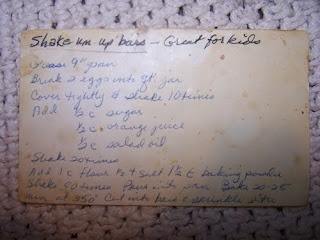 Shake um up bars - Great for kids
Grease 9" pan
Break 2 eggs into qt. jar
Cover tightly & shake 10 times
Add ½ c sugar
½ c orange juice
⅓ c salad oil
Shake 20 times
Add 1 c flour ½ t salt 1½ t baking powder
Shake 50 times Pour into pan. Bake 20-25
min at 350° Cut into bars & sprinkle